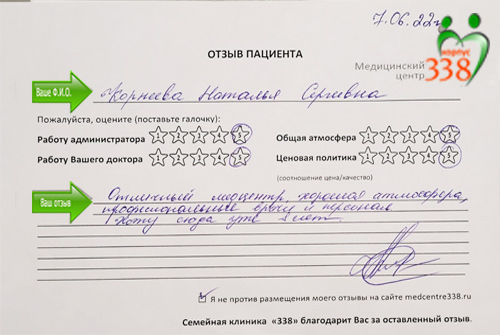 7.06.22г
корпус
338
ОТЗЫВ ПАЦИЕНТА
Медицинский
центр
Ваше Ф.И.О.
Корнеева Наталья Сергивна
Пожалуйста, оцените (поставьте галочку):
Работу администратора 1 2 3 4 5
Общая атмосфера 1 2 3 4 5
Работу Вашего доктора 1 2 3 4 5
Ценовая политика 1 2 3 4 5
(соотношение цена/качество)
Ваш отзыв
Отличный медцентр, хорошая атмосфера,
профессиональные врачи и персонал
Хожу сюда уже лет.
Я не против размещения моего отзывы на сайте medcentre338.ru
Семейная клиника «338» благодарит Вас за оставленный отзыв.